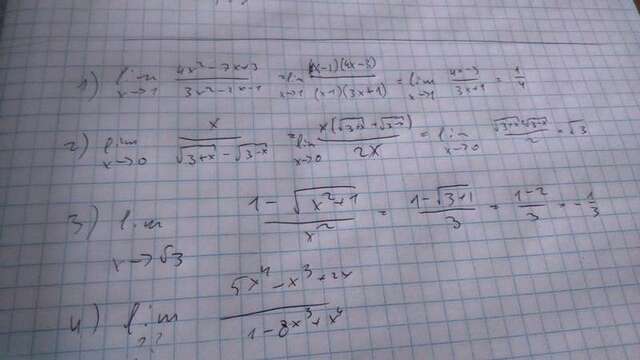 1) lim x→1 (4x²-7x+3)/(3x²-2x-1) = lim x→1 ((x-1)(4x-3))/((x-1)(3x+1)) = lim x→1 (4x-3)/(3x+1) = 1/4
2) lim x→0 x/(√(3+x) - √(3-x)) = lim x→0 (x(√(3+x) + √(3-x)))/(2x) = lim x→0 (√(3+x)+√(3-x))/2 = √3
3) lim x→√3 (1-√(x²+1))/x² = (1-√(3+1))/3 = (1-2)/3 = -1/3
4) lim ?? (5x⁴-x³+2x)/(1-8x³+x⁴)